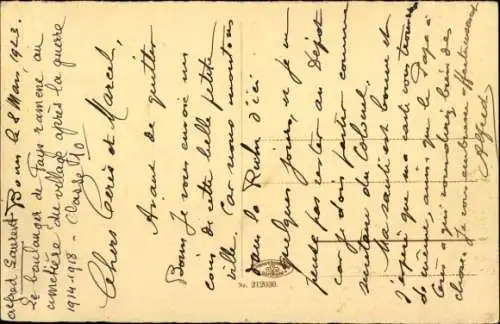 Alfred Laurent
Bonn le 8 Mars 1923.
Le boulanger de Pays ramené au
cimetière du village après la guerre
1914-1918 - Classe 20
Chers Céris et Marcel,
Avant de quitter
Bonn je vous envoie un
coin de cette belle petite
ville. Car nous montons
dans la Ruhr d'ici
quelques jours, et je ne
pense pas rester au Dépôt
car je dois partir comme
du Colonel.
Ma santé est bonne et
J'espère que ma carte vous trouvera
de même, ainsi que le Papa à
qui vous voudrez bien des
choses. Je vous embrasse affectueusement
Alfred
Nr. 212030.